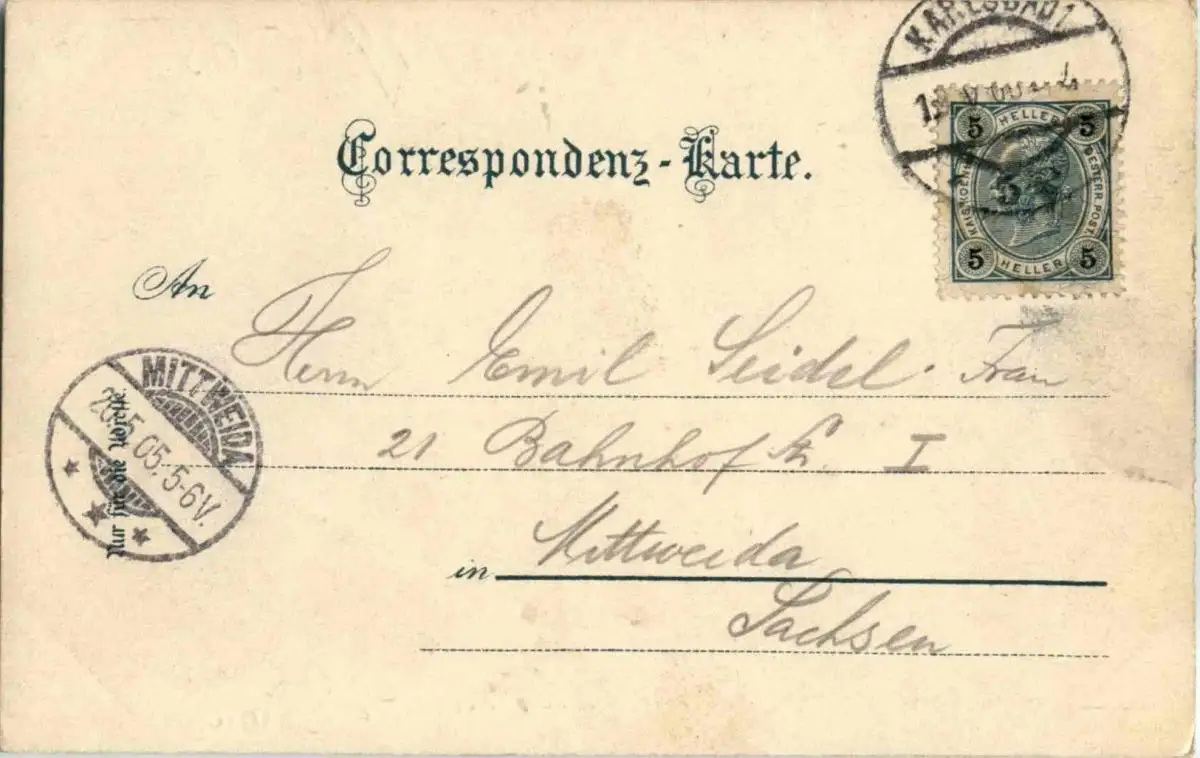 KARLSBAD 1
Correspondenz-Karte.
5 HELLER 5
KAIS. KOEN. OESTERR. POST.
5
5 HELLER 5
An
Herrn Emil Seidel. Frau
21 Bahnhofstr. I
in Mittweida
Sachsen
MITTWEIDA
5.05.5-6V.
Nur für die Adresse.